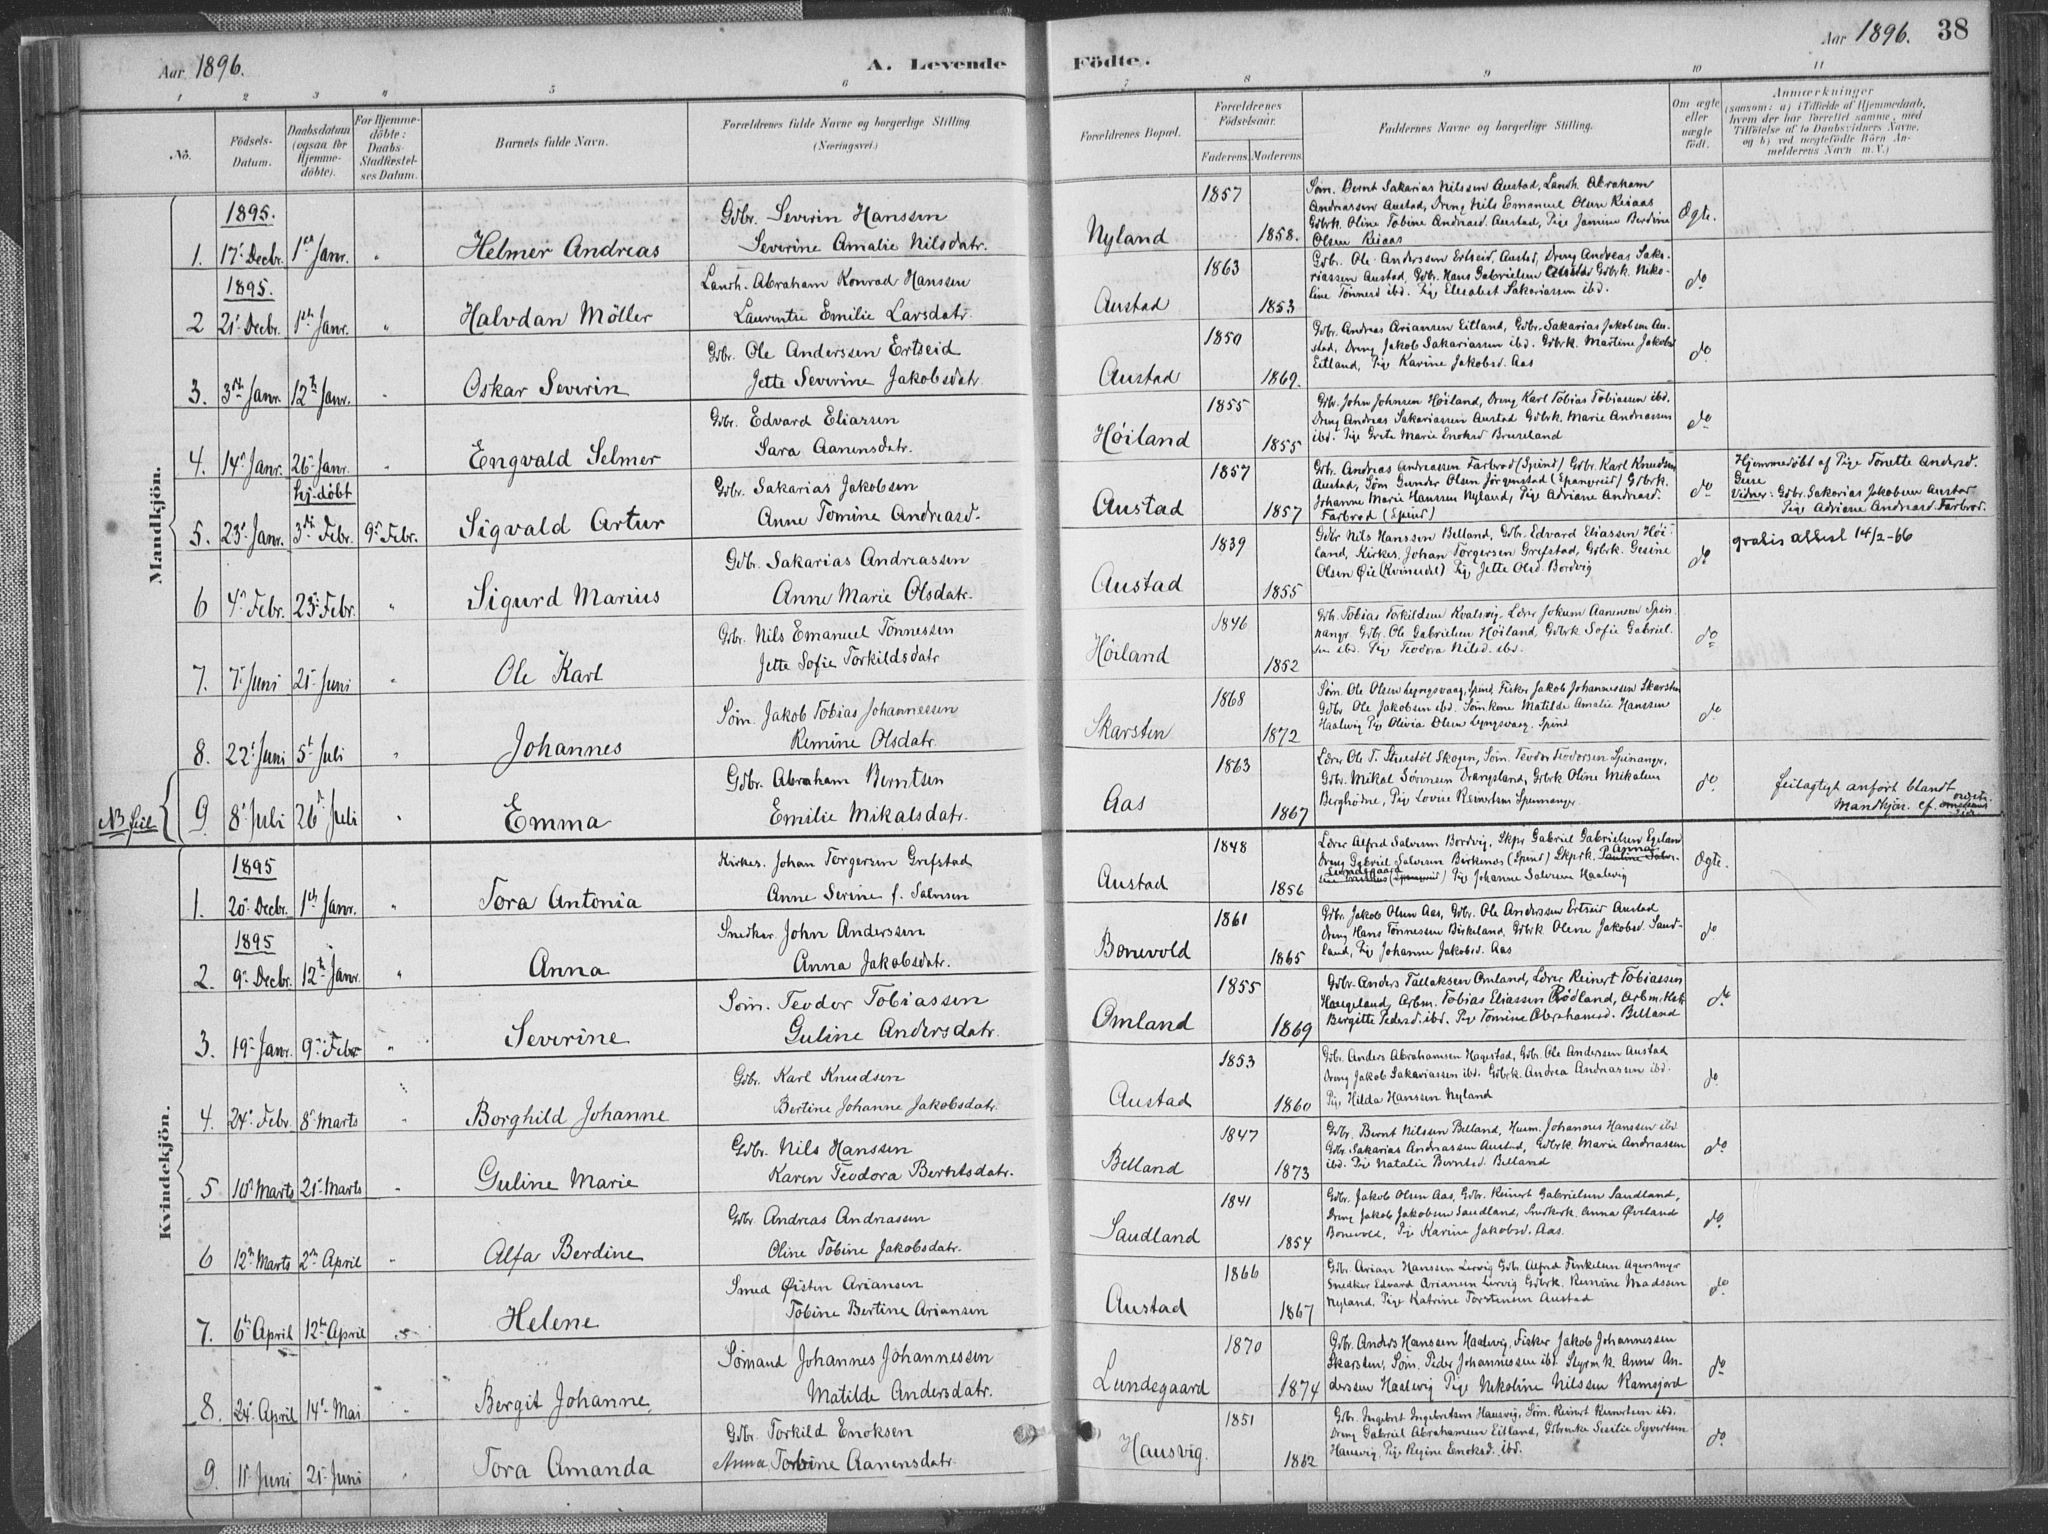 Aar 1896.
A. Levende
Födte.
Aar 1896. 38
1 2 3 4 5 6 7 8 9 10 11
Nö.
Födsels-Datum.
Daabsdatum (ogsaa for Hjemme-döbte).
For Hjemme-döbte: Daabs-Stadfæstel-ses Datum.
Barnets fulde Navn.
Forældrenes fulde Navne og borgerlige Stilling. (Næringsvei.)
Forældrenes Bopæl.
Forældrenes Födselsaar.
Faderens. Moderens.
Faddernes Navne og borgerlige Stilling.
Om ægte eller uægte födt.
Anmærkninger
(saasom: a) i Tilfælde af Hjemmedaab, hvem der har forrettet samme, med Tilföielse af to Daabsvidners Navne, og b) ved uægtefödte Börn An-melderens Navn m. V.)
Mandkjön.
1895.
1. 17. Decbr. 1ste Janr. " Helmer Andreas
Gbr. Severin Hanssen
Severine Amalie Nilsdatr.
Nyland 1857 1858.
Søm. Bernt Sakarias Nilssen Austad, Landh. Abraham
Andreassen Austad, Dreng Nils Emanuel Olsen Reiaas
Gbrk. Oline Tobine Andreasd. Austad, Pige Jamine Berdine
Olsen Reiaas
Ægte.
1895.
2 21. Decbr. 1ste Janr. " Halvdan Möller
Landh. Abraham Konrad Hanssen
Laurentze Emilie Larsdatr.
Austad 1863 1853
Gbr. Ole Anderssen Ertseid, Austad, Dreng Andreas Saka-
riassen Austad, Gbr. Hans Gabrielsen Austad Gbrk. Niko-
line Tönnesd ibd. Pige Elesabet Sakariassen ibd.
do
3. 3die Janr. 12te Janr. " Oskar Severin
Gbr. Ole Anderssen Ertseid
Jette Severine Jakobsdatr.
Austad 1850 1869.
Gbr. Andreas Ariansen Eitland, Gbr. Sakarias Jakobsen Au-
stad, Dreng Jakob Sakariassen ibd. Gbrk. Martine Jakobsd
Eitland, Pige Karine Jakobsd. Aas
do
4. 14. Janr. 26. Janr. " Engvald Selmer
Gbr. Edvard Eliassen
Sara Aanensdatr.
Høiland 1855 1855
Gbr. John Johnsen Høiland, Dreng Karl Tobias Tobiassen ibd.
Dreng Andreas Sakariassen Austad Gbrk. Marie Andreassen
ibd. Pige Grete Marie Enoksd Bruseland
do
hj. döbt
5. 23. Janr. 3die Febr. 9. Febr. Sigvald Artur
Gbr. Sakarias Jakobsen
Anne Tomine Andreasd.
Austad 1857 1857
Gbr. Andreas Andreassen Farbrod (Spind) Gbr. Karl Knudsen
Austad, Søm Gunder Olsen Jörgenstad (Spangreid) Gbrk.
Johanne Marie Hanssen Nyland, Pige Adriane Andreasd.
Farbrod (Spind)
do
Hjemmedøbt af Pige Tonette Andersd.
Vidner: Gbr. Sakarias Jakobsen Austad
Pige Adriane Andreasd. Farbrod.
6 4. Febr. 23. Febr. " Sigurd Marius
Gbr. Sakarias Andreassen
Anne Marie Olsdatr.
Austad 1839 1855
Gbr Nils Hanssen Belland, Gbr. Edvard Eliassen Høi-
land, Kirkes. Johan Torgersen Grefstad, Gbrk. Gesine
Olsen Øie (Kvinesdal) Pige Jette Olsd. Bordvig
do
gratis attest 14/2-66
7. 7. Juni 21. Juni " Ole Karl
Gbr. Nils Emanuel Tönnessen
Jette Sofie Torkildsdatr
Høiland 1846 1852
Gbr. Tobias Torkildsen Kvalsvig, Lærer Jokum Aanensen Spin-
nangr. Gbr. Ole Gabrielsen Høiland, Gbrk Sofie Gabriel-
sen ibd. Pige Teodora Nilsd. ibd.
do
8. 22. Juni 5. Juli " Johannes
Søm. Jakob Tobias Johannessen
Remine Olsdatr.
Skarsten 1868 1872
Søm. Ole Olsen Lyngsvaag, Spind, Fisker Jakob Johannessen Skarsten
Gbr. Ole Jakobsen ibd. Sømkone Matilde Amalie Hanssen
Haalvig Pige Olivia Olsen Lyngsvaag, Spind
do
NB feil
9 8. Juli 26. Juli " Emma
Gbr. Abraham Berntsen
Emilie Mikalsdatr.
Aas 1863 1867
Lærer Ole T. Skogen, Søm. Teodor Teodorsen Spinangr.
Gbr. Mikal Sörensen Drangsland, Gbrk Oline Mikalsen
Berghödne, Pige Lovise Reinertsen Spennangr.
do
feilagtigt anført blandt
Mandkjön. cf.
Kvindekjön.
1895
1. 20. Decbr. 1ste Janr. " Tora Antonia
Kirkes. Johan Torgersen Grefstad
Anne Serine f. Salvesen
Austad 1848 1856
Lærer Alfred Salvesen Bordvig, Skpr. Gabriel Gabrielsen Egeland
Dreng Gabriel Salvesen Birkenes (Spind) Skprk. Anna
Lundegaard Pige Johanne Salvesen Haalvig
Ægte.
1895
2. 9. Decbr. 12te Janr. " Anna
Snedker John Anderssen
Anna Jakobsdatr.
Bonevold 1861 1865
Gbr. Jakob Olsen Aas, Gbr. Ole Anderssen Ertseid Austad
Dreng Hans Tönnessen Birkeland, Gbrk Olene Jakobsd. Sand-
land, Pige Johanne Jakobsd. Aas
do
3. 19. Janr. 9. Febr " Severine
Søm. Teodor Tobiassen
Guline Andersdatr.
Omland 1855 1869
Gbr. Anders Tallaksen Omland, Lærer Reinert Tobiassen
Haugeland, Arbm. Tobias Eliassen Rödland, Arbm.k
Birgitte Pedersd. ibd. Pige Tomine Abrahamsd. Belland
do
4. 24. Febr. 8. Marts " Borghild Johanne
Gbr. Karl Knudsen
Bertine Johanne Jakobsdatr.
Austad 1853 1860
Gbr. Anders Abrahamsen Hagestad, Gbr. Ole Anderssen Austad
Dreng Jakob Sakariassen ibd. Gbrk. Andrea Andreassen ibd.
Pige Hilda Hanssen Nyland
do
5 10. Marts 21. Marts " Guline Marie
Gbr. Nils Hanssen
Karen Teodora Berntsdatr.
Belland 1847 1873
Gbr. Bernt Nilssen Belland, Husm. Johannes Hanssen ibd
Gbr. Sakarias Andreassen Austad, Gbrk Marie Andreassen
ibd. Pige Natalie Berntsd. Belland
do
6 12. Marts 2. April " Alfa Berdine
Gbr. Andreas Andreassen
Oline Tobine Jakobsdatr.
Sandland 1841 1854
Gbr. Jakob Olsen Aas, Gbr. Reinert Gabrielsen Sandland,
Dreng Jakob Jakobsen Sandland, Snedkrk. Anna Øveland
Bonevold, Pige Karine Jakobsd. Aas.
do
7. 6te April 12te April " Helene
Smed Øisten Ariansen
Tobine Bertine Ariansen
Austad 1866 1867
Gbr. Arian Hanssen Lervig Gbr. Alfred Finkelsen Agersmyr
Snedker Edvard Ariansen Lervig Gbrk. Remine Madssen
Nyland, Pige Katrine Torstensen Austad
do
8. 24. April 14. Mai " Bergit Johanne
Sømand Johannes Johannessen
Matilde Andersdatr.
Lundegaard 1870 1874
Gbr. Anders Hanssen Haalvig, Fisker Jakob Johannessen
Skarsten, Søm. Peder Johannessen ibd. Styrm.k Anne An-
derssen Haalvig Pige Nikoline Nilssen Ramsjord
do
9. 11. Juni 21. Juni " Tora Amanda
Gbr. Torkild Enoksen
Anna Tobine Aanensdatr.
Hausvig. 1851 1862
Gbr. Ingebret Ingebretsen Hausvig, Søm. Reinert Reinertsen ibd.
Dreng Gabriel Abrahamsen Eitland, Gbruke Sesilie Syvertsen
Hausvig, Pige Regine Enoksd. ibd.
do